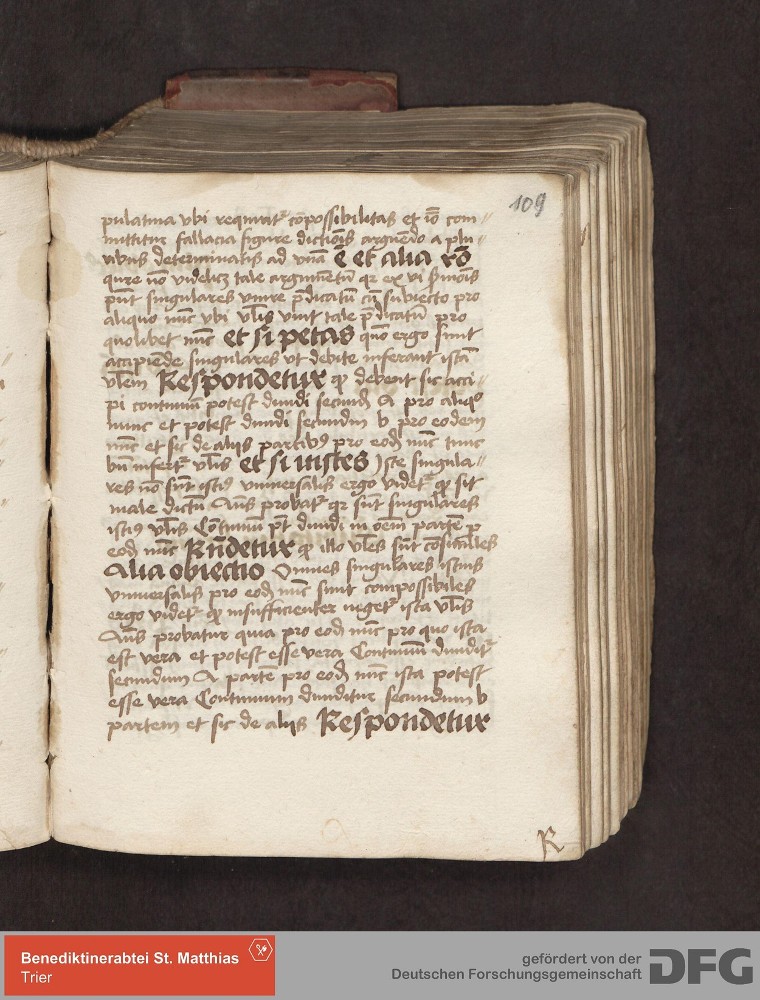 109
pulatiua vbi requirit᷑ cōpossibilitas et iō com〃
mittitur fallacia figure dictiōis arguēdo a plu〃
ribus determinatis ad vnā Ē et alia rō
qure nō videlicꝫ tale argumētū qꝛ ex vi ẜmōis
pn̄t singulares vnire p̄dicatū cū subiecto pro
aliquo nūc vbi vl̄is vnit tale p̄dicatū pro
quolibet nūc et si petas quō ergo sunt
accipiēde singulares vt debite inferant istā
vl̄em Respondetur ꝙ debent sic acci〃
pi continuū potest diuidi secundū A pro aliqͦ
nunc et potest diuidi secundum b pro eodem
nūc et sic de alijs partibꝰ pro eodē nūc tunc
bn̄ infert᷑ vl̄is et si instes Iste singula〃
res nō sūt istiꝰ vniuersalis ergo videt᷑ ꝙ sit
male dictū Añs probat᷑ qꝛ sūt singulares
istiꝰ vl̄is Cōtinuū pt̄ diuidi in oēm partē ꝓ
eodē nūc Rn̄detur ꝙ illo vl̄es sūt cōsimiles
Alia obiectio Omnes singulares istius
vniuersalis pro eodē nūc sunt compossibiles
ergo videt᷑ ꝙ insufficienter neget᷑ ista vl̄is
Añs probatur quia pro eodē nūc pro quo ista
est vera et potest esse vera Continuū diuidit᷑
secundum A partē pro eodē nūc ista potest
esse vera Continuum diuiditur secundum b
partem et sic de alijs Respondetur
R
Benediktinerabtei St. Matthias
Trier
gefördert von der
Deutschen Forschungsgemeinschaft
DFG